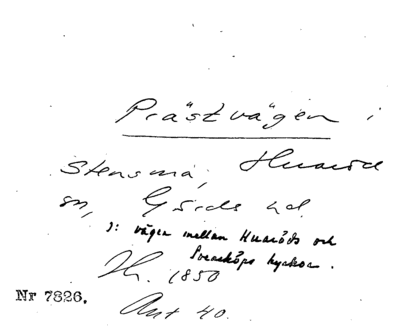 Prästvägen i
Stensma, Huaröd
sn, Gärds hd.
ɔ: vägen mellan Huaröds och
Svensköps kyrkor.
Th. 1850
Ant 40.
Nr 7826.